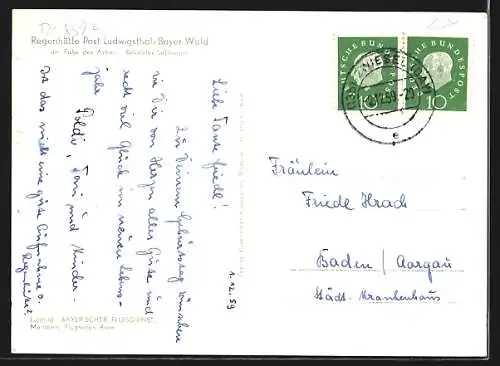 D-8372
Regenhütte Post Ludwigsthal, Bayer. Wald
am Fuße des Arber. Beliebter Luftkurort
1.12.59
Liebe Tante Friedl!
Zu Deinem Geburtstag wünschen
wir Dir von Herzen alles Gute und
recht viel Glück im neuen Lebens-
jahr.
Poldi, Toni und Kinder.
Ist das nicht eine gute Aufnahme v.
Regenhütte?
Luftbild: BAYERISCHER FLUGDIENST,
München, Flughafen Riem
DEUTSCHE BUNDESPOST
10
DEUTSCHE BUNDESPOST
10
ZWIESEL
.12.59.-20
e
Fräulein
Friede Hrach
Baden / Aargau
Städt. Krankenhaus